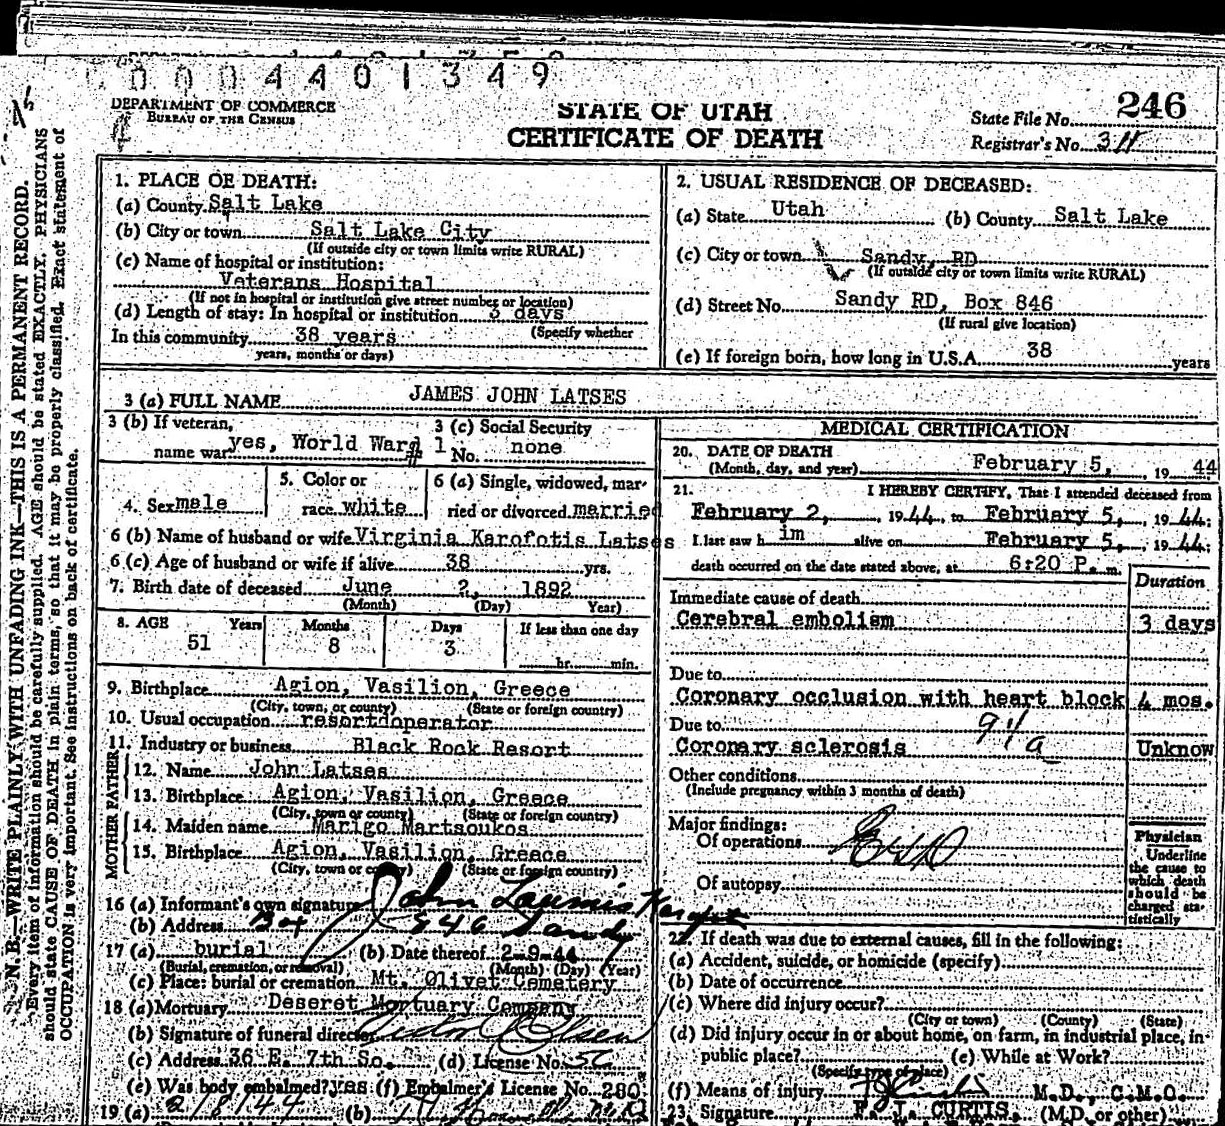 0004401349
DEPARTMENT OF COMMERCE
BUREAU OF THE CENSUS
STATE OF UTAH
CERTIFICATE OF DEATH
State File No. 246
Registrar's No.
N. B.—WRITE PLAINLY WITH UNFADING INK—THIS IS A PERMANENT RECORD.
Every item of information should be carefully supplied. AGE should be stated EXACTLY. PHYSICIANS
should state CAUSE OF DEATH in plain terms, so that it may be properly classified. Exact statement of
OCCUPATION is very important. See instructions on back of certificate.
1. PLACE OF DEATH:
(a) County Salt Lake
(b) City or town Salt Lake City
(If outside city or town limits write RURAL)
(c) Name of hospital or institution:
Veterans Hospital
(If not in hospital or institution give street number or location)
(d) Length of stay: In hospital or institution 3 days
(Specify whether
In this community 38 years
years, months or days)
2. USUAL RESIDENCE OF DECEASED:
(a) State Utah (b) County Salt Lake
(c) City or town Sandy, RD
(If outside city or town limits write RURAL)
(d) Street No. Sandy RD, Box 846
(If rural give location)
(e) If foreign born, how long in U.S.A. 38 years
3 (a) FULL NAME JAMES JOHN LATSES
3 (b) If veteran, 3 (c) Social Security
name war yes, World War # 1 No. none
4. Sex male
5. Color or
race white
6 (a) Single, widowed, mar-
ried or divorced married
6 (b) Name of husband or wife Virginia Karofotis Latses
6 (c) Age of husband or wife if alive 38 yrs.
7. Birth date of deceased June 2, 1892
(Month) (Day) Year)
8. AGE Years Months Days If less than one day
51 8 3
hr. min.
9. Birthplace Agion, Vasilion, Greece
(City, town, or county) (State or foreign country)
10. Usual occupation resort operator
11. Industry or business Black Rock Resort
FATHER
12. Name John Latses
13. Birthplace Agion, Vasilion, Greece
(City, town or county) (State or foreign country)
MOTHER
14. Maiden name Marigo Martsoukos
15. Birthplace Agion, Vasilion, Greece
(City, town or county) (State or foreign country)
16 (a) Informant's own signature John
(b) Address Box 846 Sandy
17 (a) burial (b) Date thereof 2-9-44
(Burial, cremation, or removal) (Month) (Day) (Year)
(c) Place: burial or cremation Mt. Olivet Cemetery
18 (a) Mortuary Deseret Mortuary Company
(b) Signature of funeral director
(c) Address 36 E. 7th So. (d) License No. 56
(e) Was body embalmed? yes (f) Embalmer's License No. 280
19 (a) 2/8/44 (b)
MEDICAL CERTIFICATION
20. DATE OF DEATH
(Month, day, and year) February 5, 19 44
21. I HEREBY CERTIFY, That I attended deceased from
February 2, 19 44, to February 5, 19 44;
I last saw h im alive on February 5, 19 44;
death occurred on the date stated above, at 6:20 P. m.
Duration
Immediate cause of death
Cerebral embolism 3 days
Due to
Coronary occlusion with heart block 4 mos.
Due to
Coronary sclerosis Unknow
Other conditions
(Include pregnancy within 3 months of death)
Major findings:
Of operations
Of autopsy
Physician
Underline
the cause to
which death
should be
charged sta-
tistically
22. If death was due to external causes, fill in the following:
(a) Accident, suicide, or homicide (specify)
(b) Date of occurrence
(c) Where did injury occur?
(City or town) (County) (State)
(d) Did injury occur in or about home, on farm, in industrial place, in
public place? (e) While at Work?
(Specify type of place)
(f) Means of injury M.D., C.M.O.
23. Signature F. J. CURTIS. (M.D. or other)